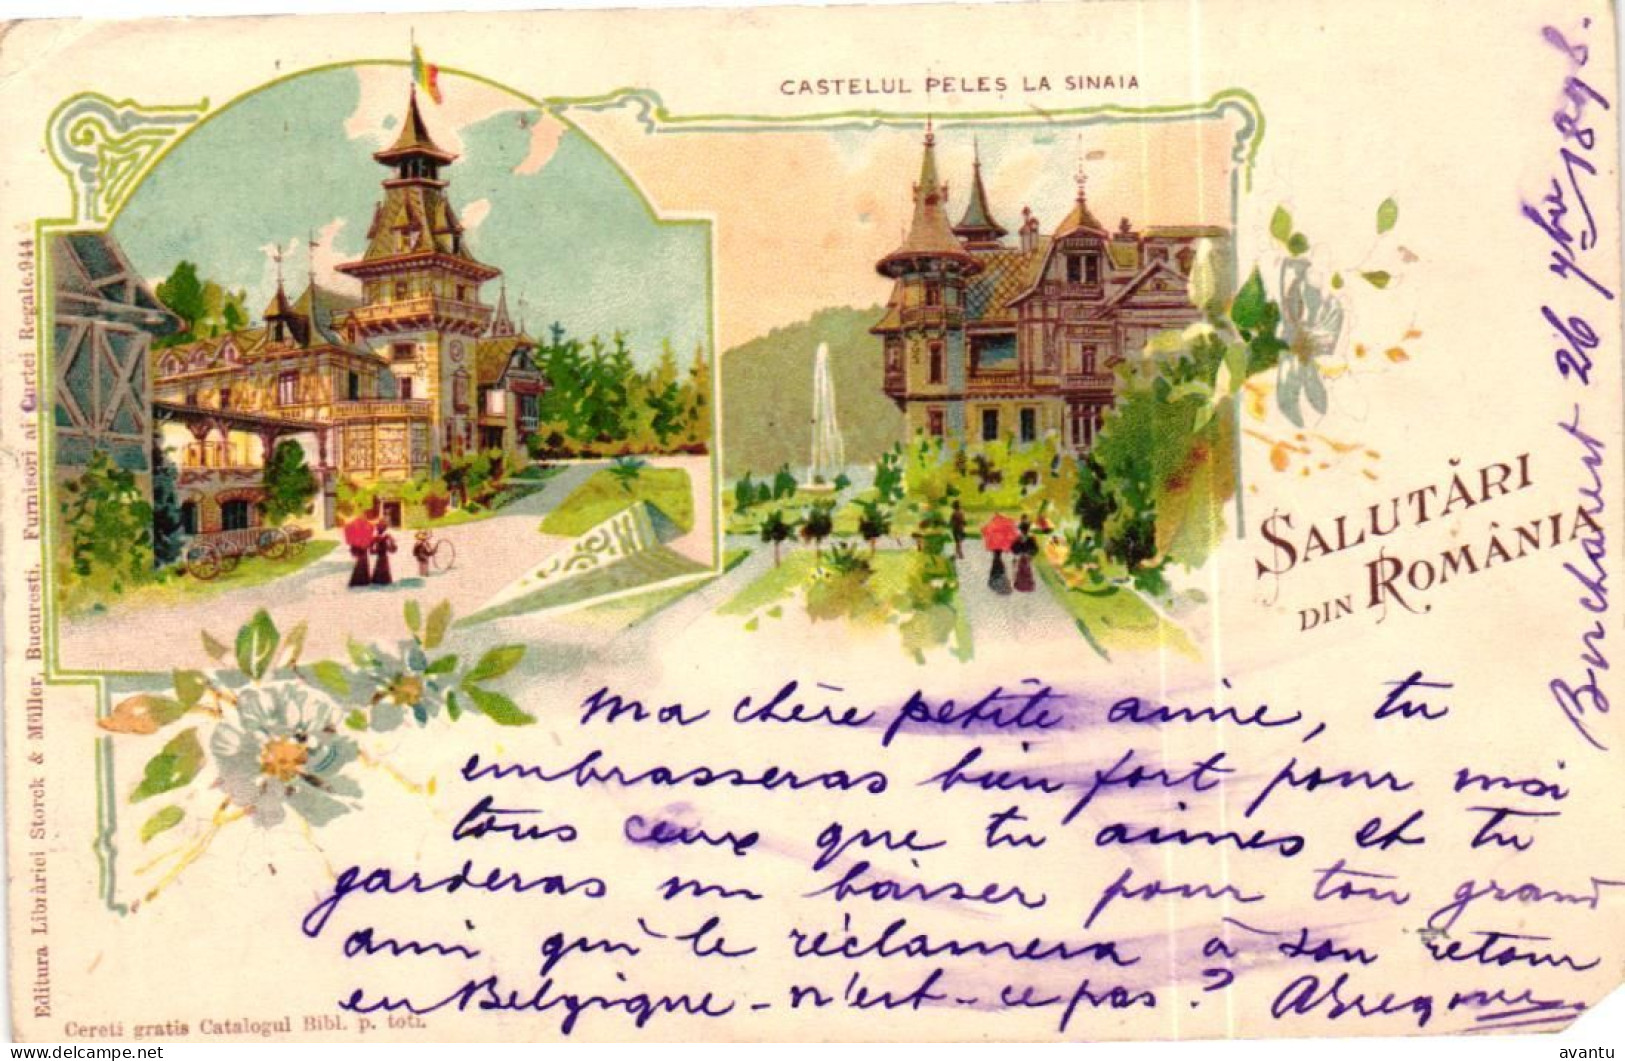 CASTELUL PELES LA SINAIA
SALUTĂRI
DIN ROMÂNIA
26 7bre 1898.
Ma chère petite amie, tu
embrasseras bien fort pour moi
tous ceux que tu aimes et tu
garderas un baiser pour ton grand
ami qui le réclamera à son retour
en Belgique - n'est-ce pas ?
Editura Librăriei Storck & Müller, Bucuresti, Furnisori ai Curtei Regale.944
Cereti gratis Catalogul Bibl. p. toti.
avantu